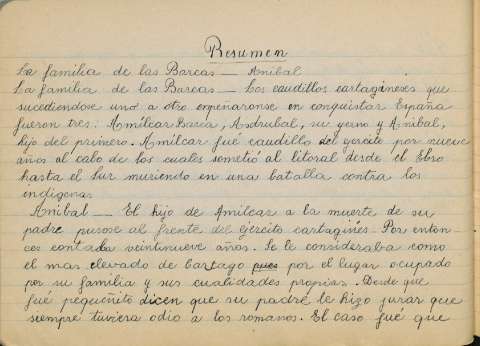 Resumen
La familia de las Barcas — Anibal
La familia de las Barcas — Los caudillos cartagineses que
sucediendose uno a otro empeñaronse en conquistar España
fueron tres: Amílcar Barca, Asdrubal, su yerno y Anibal,
hijo del primero. Amílcar fué caudillo del ejercito por nueve
años al cabo de los cuales sometió al litoral desde el Ebro
hasta el Sur muriendo en una batalla contra los
indigenas
Anibal — El hijo de Amilcar a la muerte de su
padre pusose al frente del ejército cartaginés. Por enton-
ces contaba veintinueve años. Se le consideraba como
el mas elevado de Cartago pues por el lugar ocupado
por su familia y sus cualidades propias. Desde que
fué pequeñito dicen que su padre le hizo jurar que
siempre tuviera odio a los romanos. El caso fué que